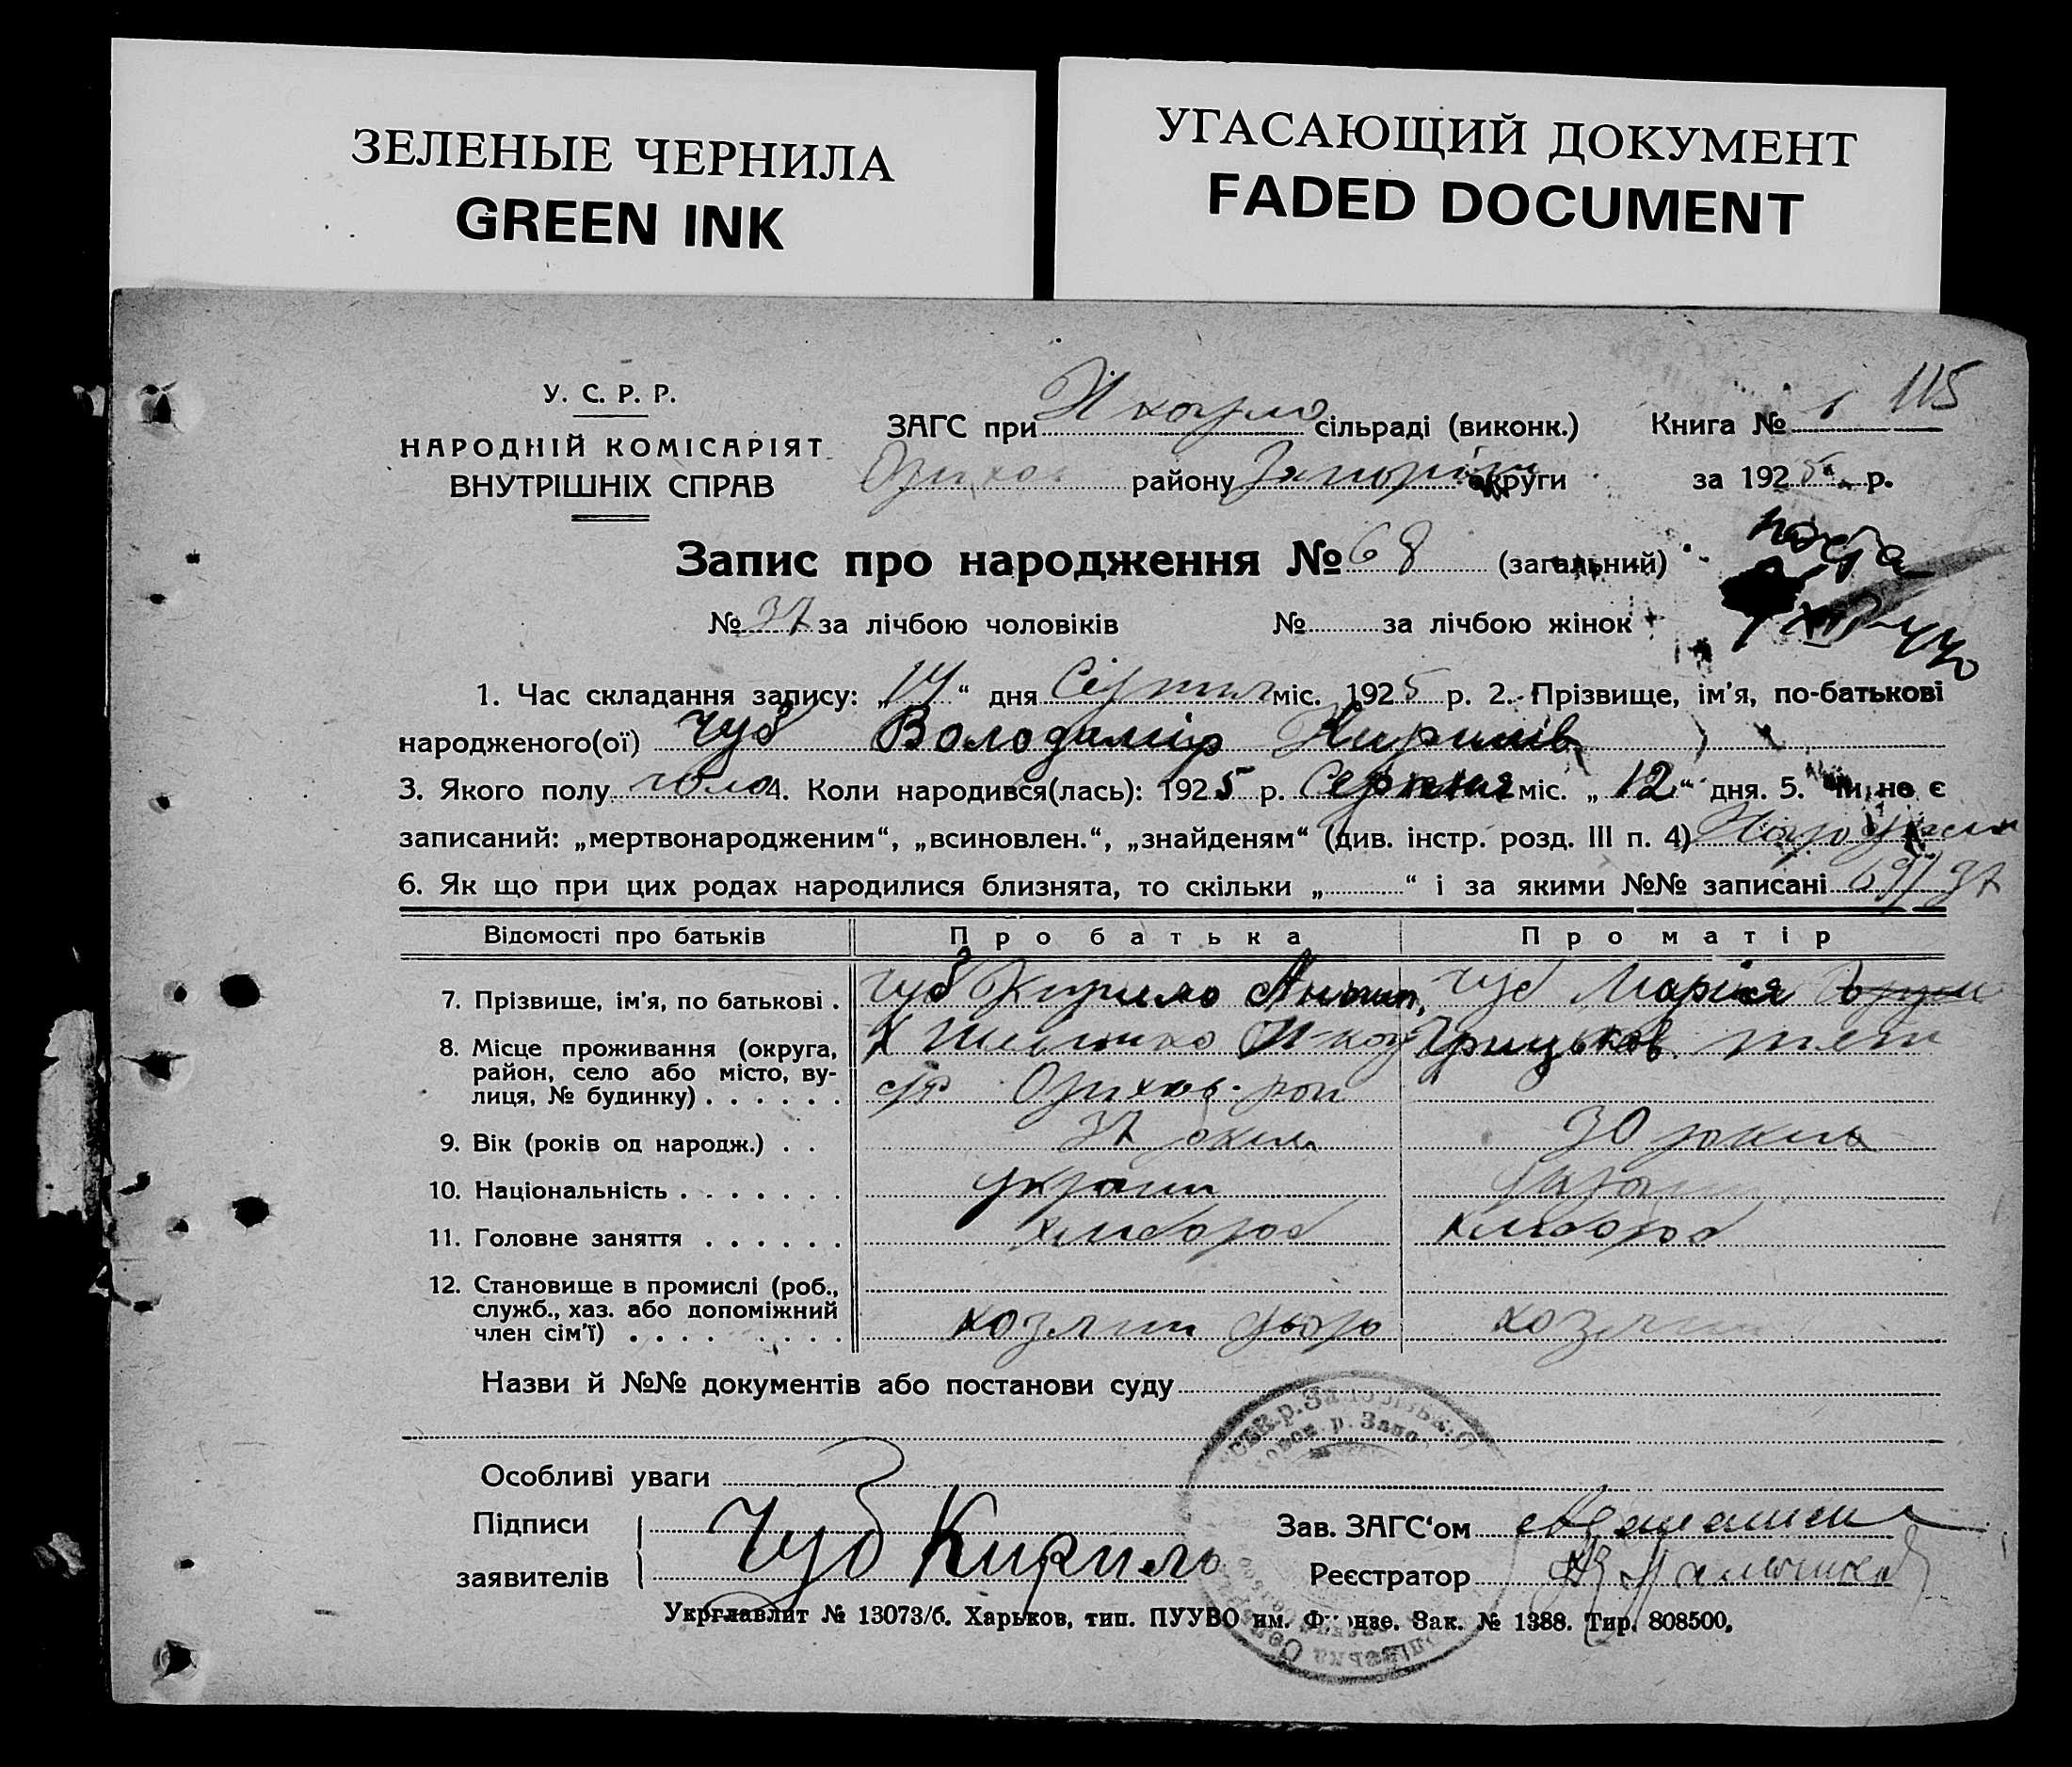 ЗЕЛЕНЫЕ ЧЕРНИЛА
GREEN INK
УГАСАЮЩИЙ ДОКУМЕНТ
FADED DOCUMENT
У. С. Р. Р.
НАРОДНІЙ КОМІСАРІЯТ
ВНУТРІШНІХ СПРАВ
ЗАГС при сільраді (виконк.) Книга № 115
Оріхов району Запоріж округи за 1925 р.
Запис про народження № 68 (загальний)
№ 37 за лічбою чоловіків № за лічбою жінок
1. Час складання запису: „14“ дня Серпня міс. 1925 р. 2. Прізвище, ім’я, по-батькові
народженого(ої) Чуб Володимір Кирилів
3. Якого полу чоло 4. Коли народився(лась): 1925 р. Серпня міс. „12“ дня. 5. Чи не є
записаний: „мертвонародженим“, „всиновлен.“, „знайденям“ (див. інстр. розд. III п. 4)
6. Як що при цих родах народилися близнята, то скільки „ “ і за якими №№ записані 69/37
Відомості про батьків Про батька Про матір
7. Прізвище, ім’я, по батькові . Чуб Кирило Чуб Марія
8. Місце проживання (округа, район, село або місто, вулиця, № будинку) . . . . . . Грицьков.
Оріхов. рай
9. Вік (років од народж.) . . 37 30 років
10. Національність . . . . . . . україн
11. Головне заняття . . . . . . хлібороб хлібороб
12. Становище в промислі (роб., служб., хаз. або допоміжний член сім’ї) . . . . . . . . . хозяин двора хозяин
Назви й №№ документів або постанови суду
Особливі уваги
Підписи
заявителів
Чуб Кирило
Зав. ЗАГС‘ом
Реєстратор
Укрглавлит № 13073/б. Харьков, тип. ПУУВО им. Фрунзе. Зак. № 1388. Тир. 808500.